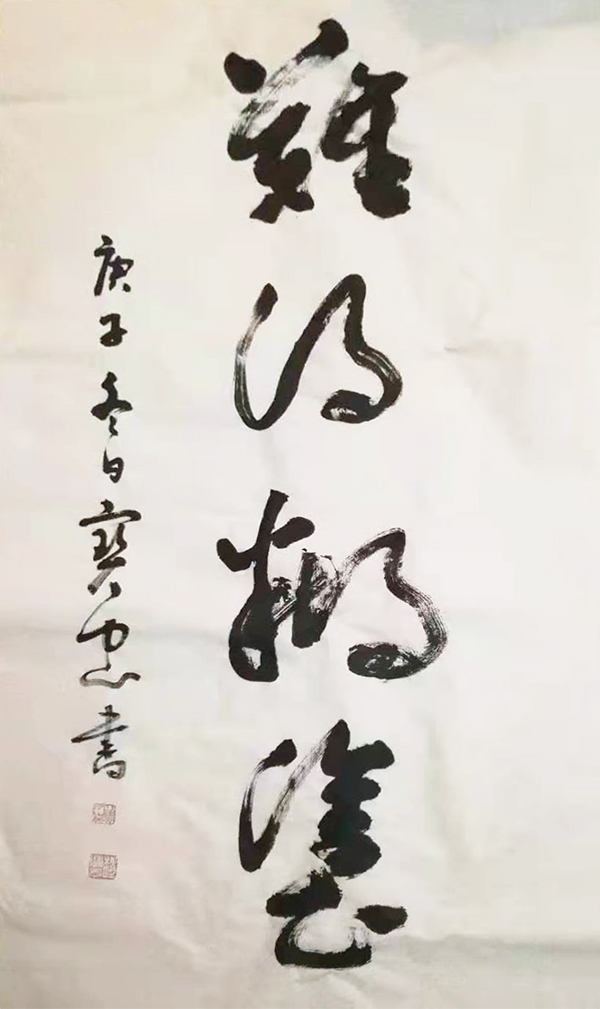 難得糊塗
庚子冬日寶忠書